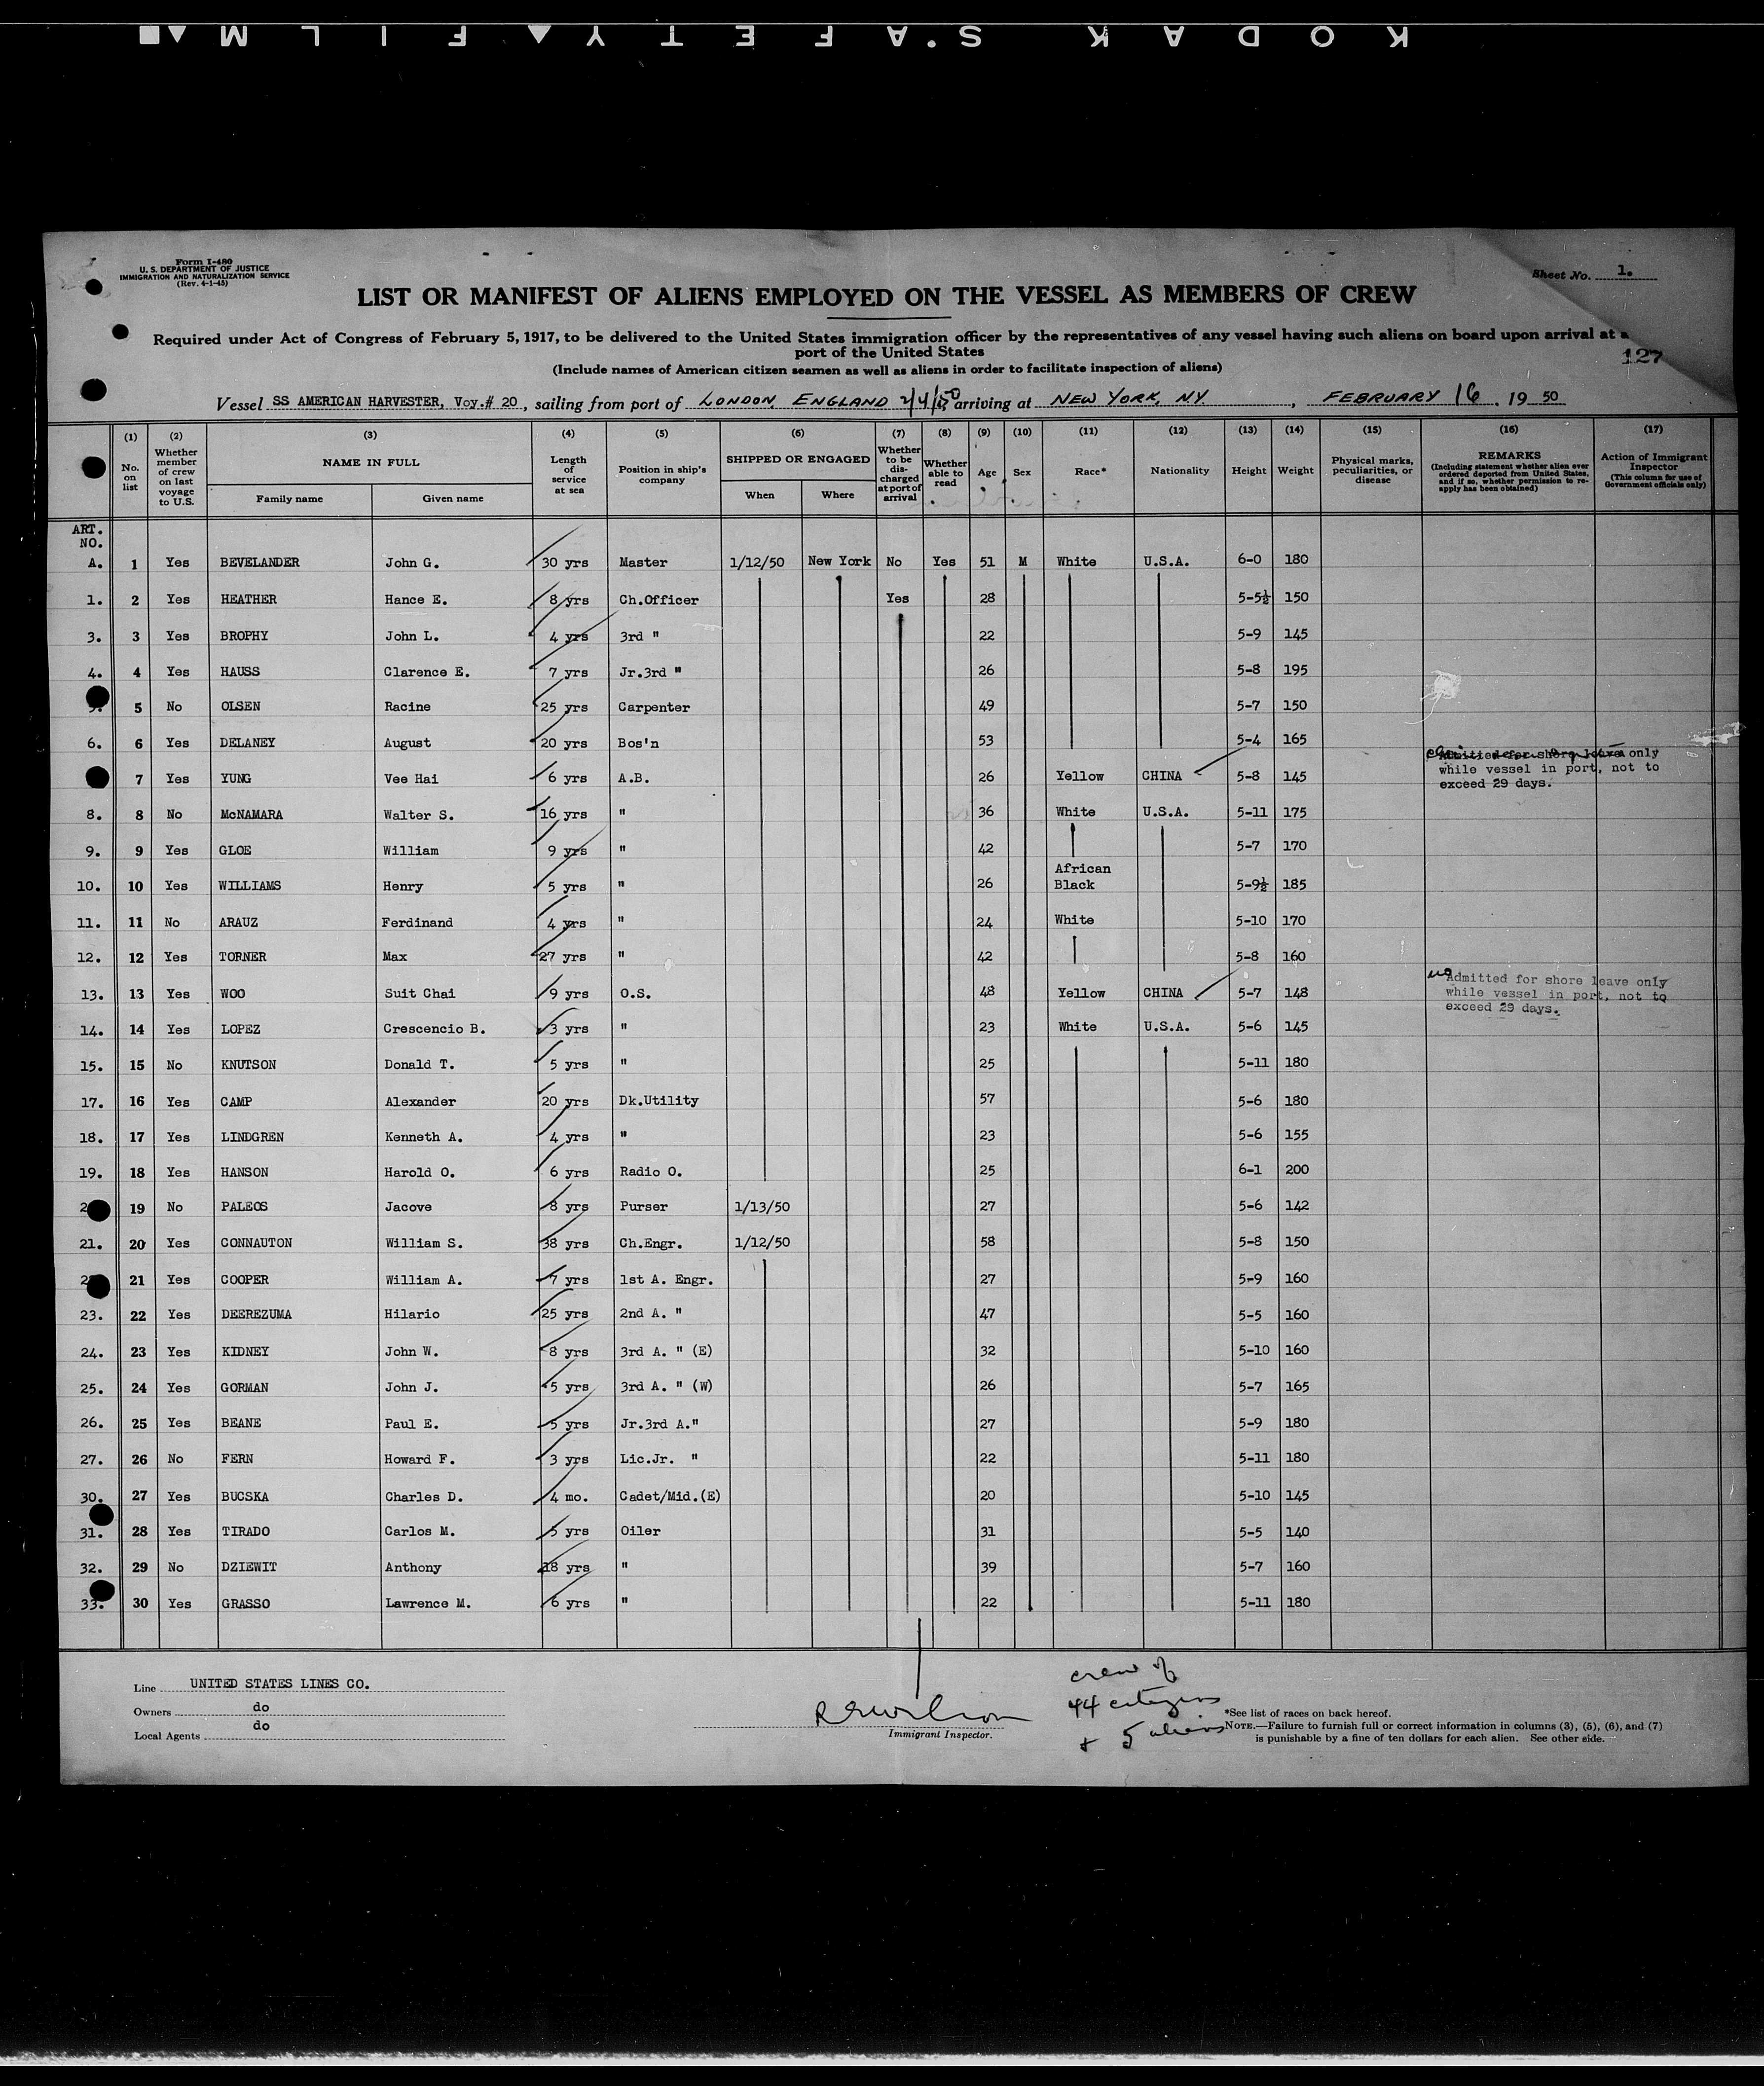 KODAK SAFETY FILM
Form I-480
U. S. DEPARTMENT OF JUSTICE
IMMIGRATION AND NATURALIZATION SERVICE
(Rev. 4-1-45)
Sheet No. 1.
LIST OR MANIFEST OF ALIENS EMPLOYED ON THE VESSEL AS MEMBERS OF CREW
Required under Act of Congress of February 5, 1917, to be delivered to the United States immigration officer by the representatives of any vessel having such aliens on board upon arrival at a
port of the United States
127
(Include names of American citizen seamen as well as aliens in order to facilitate inspection of aliens)
Vessel SS AMERICAN HARVESTER, Voy.# 20, sailing from port of LONDON, ENGLAND 2/4/50 arriving at NEW YORK, NY, FEBRUARY 16, 19 50
(1) (2) (3) (4) (5) (6) (7) (8) (9) (10) (11) (12) (13) (14) (15) (16) (17)
No. on list
Whether member of crew on last voyage to U.S.
NAME IN FULL
Family name
Given name
Length of service at sea
Position in ship's company
SHIPPED OR ENGAGED
When
Where
Whether to be discharged at port of arrival
Whether able to read
Age
Sex
Race*
Nationality
Height
Weight
Physical marks, peculiarities, or disease
REMARKS
(Including statement whether alien ever ordered deported from United States, and if so, whether permission to reapply has been obtained)
Action of Immigrant Inspector
(This column for use of Government officials only)
ART. NO.
A. 1 Yes BEVELANDER John G. 30 yrs Master 1/12/50 New York No Yes 51 M White U.S.A. 6-0 180
1. 2 Yes HEATHER Hance E. 8 yrs Ch.Officer Yes 28 5-5½ 150
3. 3 Yes BROPHY John L. 4 yrs 3rd " 22 5-9 145
4. 4 Yes HAUSS Clarence E. 7 yrs Jr.3rd " 26 5-8 195
5 No OLSEN Racine 25 yrs Carpenter 49 5-7 150
6. 6 Yes DELANEY August 20 yrs Bos'n 53 5-4 165
7 Yes YUNG Vee Hai 6 yrs A.B. 26 Yellow CHINA 5-8 145 Admitted for shore leave only
while vessel in port, not to
exceed 29 days.
8. 8 No McNAMARA Walter S. 16 yrs " 36 White U.S.A. 5-11 175
9. 9 Yes GLOE William 9 yrs " 42 5-7 170
10. 10 Yes WILLIAMS Henry 5 yrs " 26 African Black 5-9½ 185
11. 11 No ARAUZ Ferdinand 4 yrs " 24 White 5-10 170
12. 12 Yes TORNER Max 27 yrs " 42 5-8 160
13. 13 Yes WOO Suit Chai 9 yrs O.S. 48 Yellow CHINA 5-7 148 Admitted for shore leave only
while vessel in port, not to
exceed 29 days.
14. 14 Yes LOPEZ Crescencio B. 3 yrs " 23 White U.S.A. 5-6 145
15. 15 No KNUTSON Donald T. 5 yrs " 25 5-11 180
17. 16 Yes CAMP Alexander 20 yrs Dk.Utility 57 5-6 180
18. 17 Yes LINDGREN Kenneth A. 4 yrs " 23 5-6 155
19. 18 Yes HANSON Harold O. 6 yrs Radio O. 25 6-1 200
19 No PALEOS Jacove 8 yrs Purser 1/13/50 27 5-6 142
21. 20 Yes CONNAUTON William S. 38 yrs Ch.Engr. 1/12/50 58 5-8 150
21 Yes COOPER William A. 7 yrs 1st A. Engr. 27 5-9 160
23. 22 Yes DEEREZUMA Hilario 25 yrs 2nd A. " 47 5-5 160
24. 23 Yes KIDNEY John W. 8 yrs 3rd A. " (E) 32 5-10 160
25. 24 Yes GORMAN John J. 5 yrs 3rd A. " (W) 26 5-7 165
26. 25 Yes BEANE Paul E. 5 yrs Jr.3rd A." 27 5-9 180
27. 26 No FERN Howard F. 3 yrs Lic.Jr. " 22 5-11 180
30. 27 Yes BUCSKA Charles D. 4 mo. Cadet/Mid.(E) 20 5-10 145
31. 28 Yes TIRADO Carlos M. 5 yrs Oiler 31 5-5 140
32. 29 No DZIEWIT Anthony 18 yrs " 39 5-7 160
33. 30 Yes GRASSO Lawrence M. 6 yrs " 22 5-11 180
Line UNITED STATES LINES CO.
Owners do
Local Agents do
Immigrant Inspector.
crew of
44 citizens
+ 5 aliens
*See list of races on back hereof.
NOTE.—Failure to furnish full or correct information in columns (3), (5), (6), and (7)
is punishable by a fine of ten dollars for each alien. See other side.